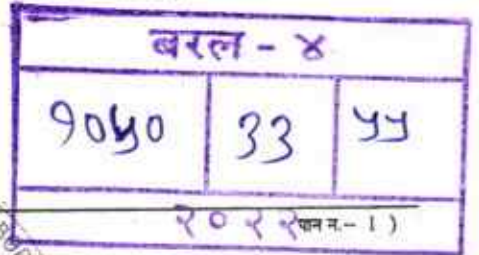 बरल - ४
१०५० ३३ ५५
२०२२ पान न.-- 1 )